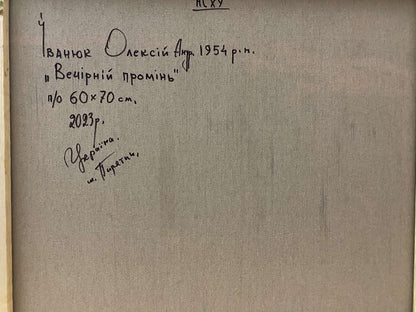 НСХУ
Іванюк Олексій Анд. 1954 р.н.
„Вечірній промінь"
п/о 60×70 см.
2023р.
Україна.
м. Пирятин.